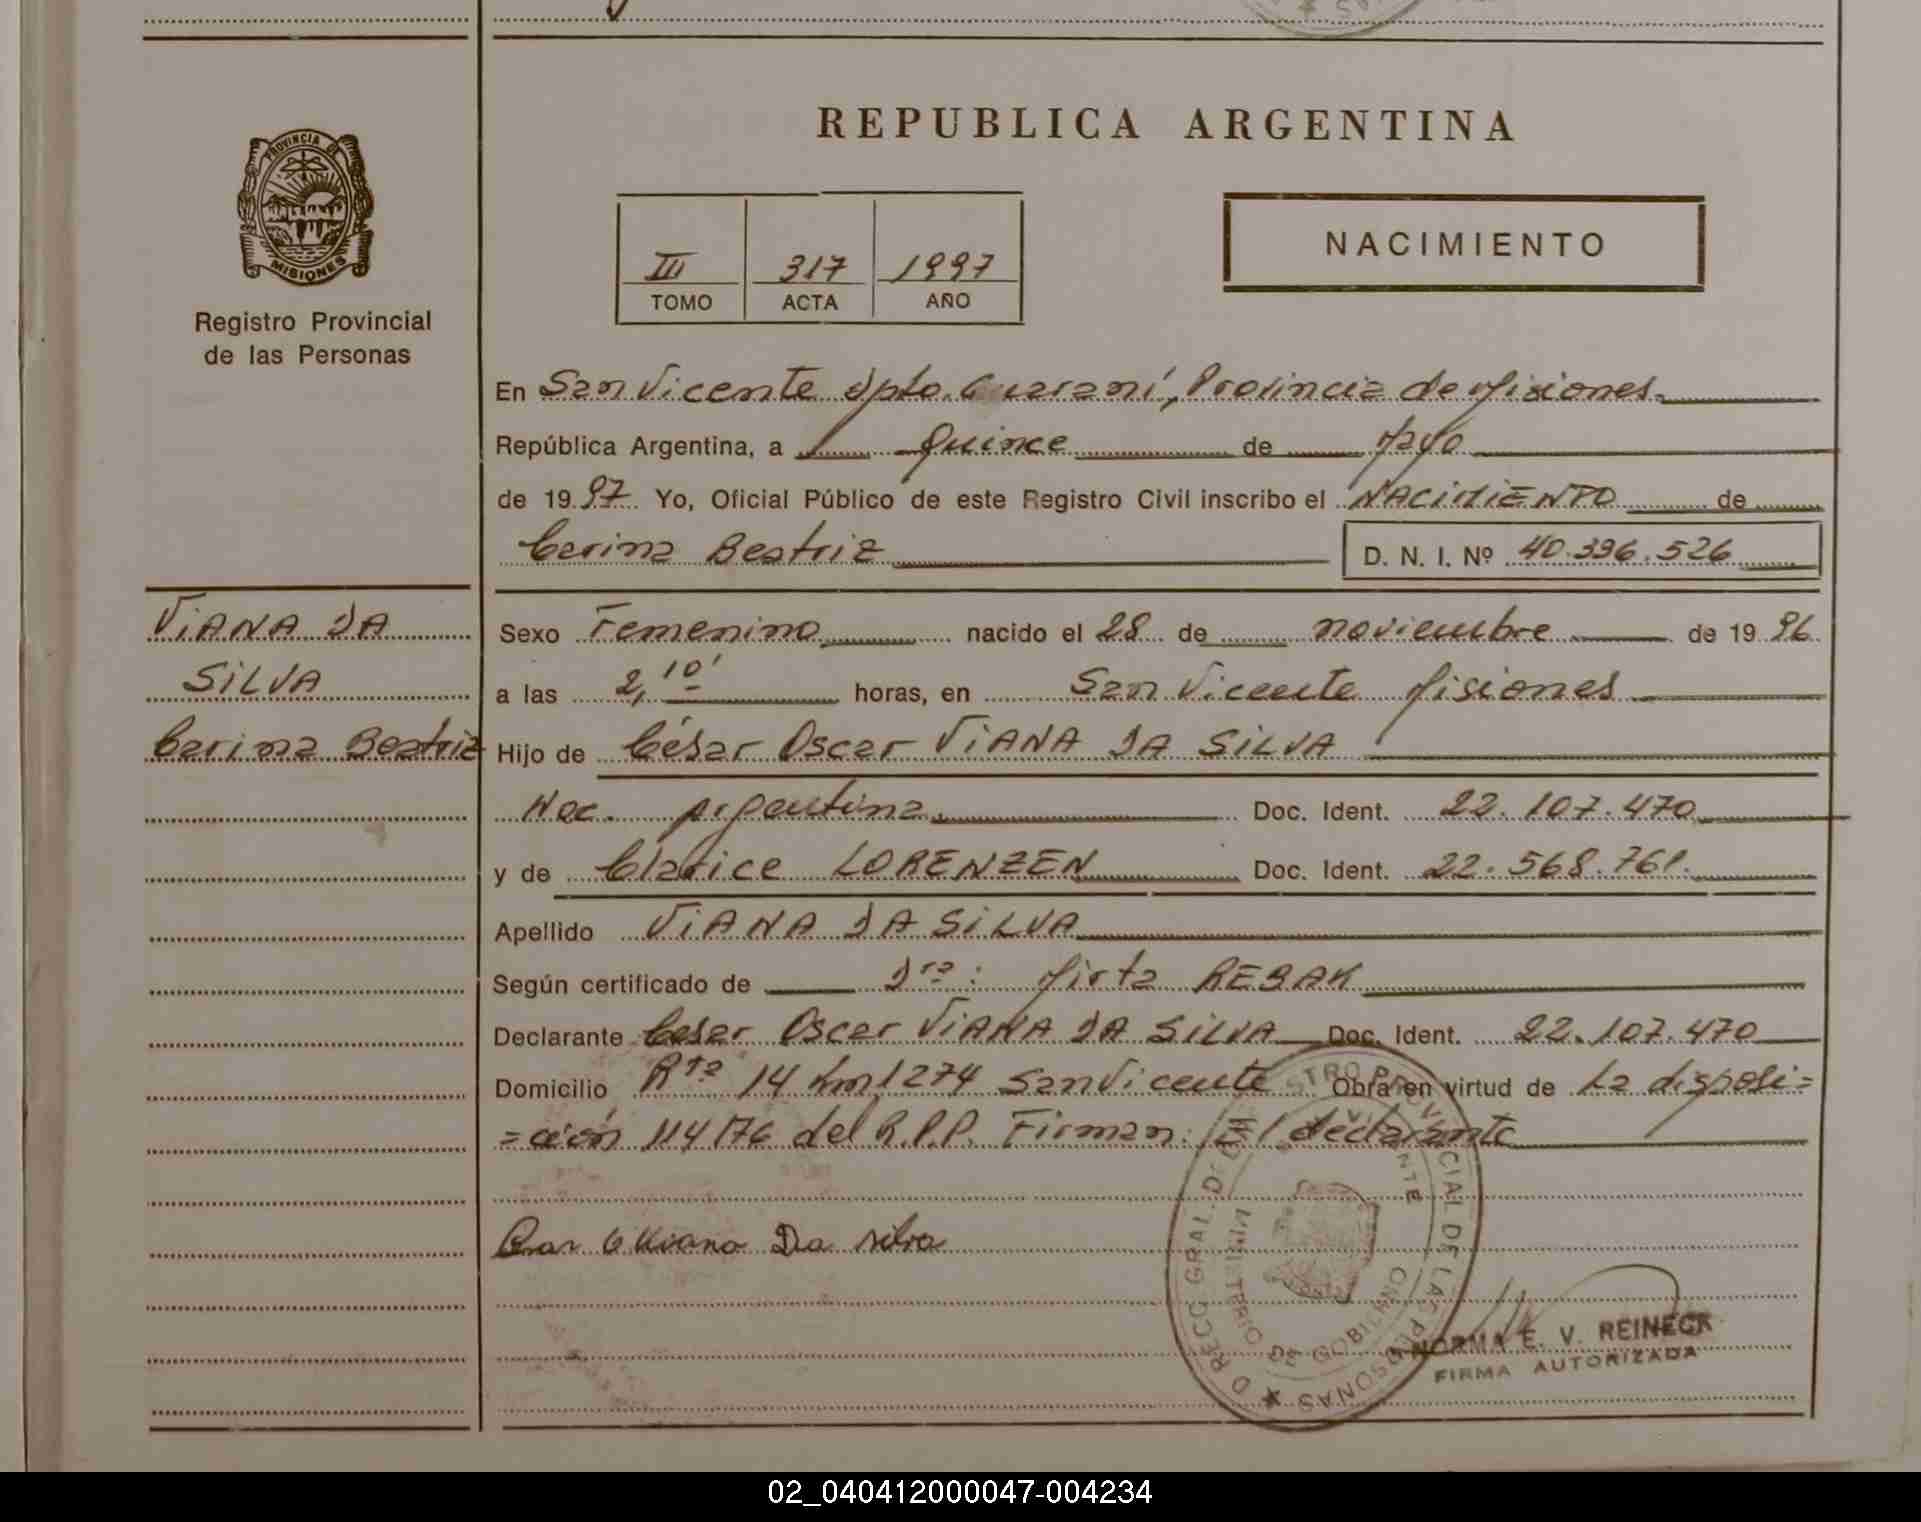 REPUBLICA ARGENTINA
PROVINCIA DE
MISIONES
Registro Provincial
de las Personas
III 317 1997
TOMO ACTA AÑO
NACIMIENTO
En San Vicente Dpto. Guaraní, Provincia de Misiones.
República Argentina, a Quince de Mayo
de 1997 Yo, Oficial Público de este Registro Civil inscribo el NACIMIENTO de
Carina Beatriz D. N. I. Nº 40.396.526
VIANA DA
SILVA
Carina Beatriz
Sexo Femenino nacido el 28 de noviembre de 1996
a las 2,10' horas, en San Vicente Misiones
Hijo de César Oscar VIANA DA SILVA
Nac. Argentina Doc. Ident. 22.107.470
y de Clarice LORENZEN Doc. Ident. 22.568.761.
Apellido VIANA DA SILVA
Según certificado de Dra: Mirta REBAK
Declarante Cesar Oscar VIANA DA SILVA Doc. Ident. 22.107.470
Domicilio Rta 14 km 1274 San Vicente Obra en virtud de La disposi=
=ción 114/76 del R.P.P. Firman: El declarante
Viana Da silva
DIRECC. GRAL. DEL REGISTRO PROVINCIAL DE LAS PERSONAS
MINISTERIO DE GOBIERNO
NORMA E. V. REINECK
FIRMA AUTORIZADA
02_040412000047-004234